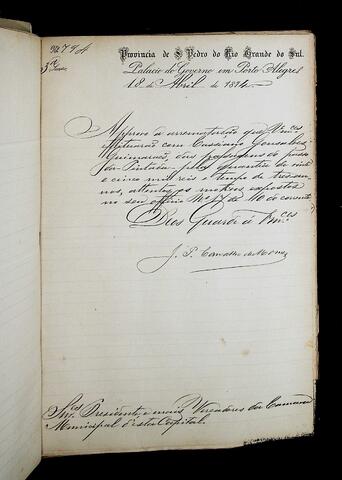 Nº 794
3ª Secção
Provincia de S. Pedro do Rio Grande do Sul.
Palacio do Governo em Porto Alegre,
18 de Abril de 1874.
Approvo a arrematação que Vmces
effectuarão com Cassiano Gonsalves
Guimarães, das passagens do passo
da Pintada, pela quantia de vinte
e cinco mil reis e tempo de tres an-
nos, attentos os motivos expostos
no seu officio Nº 17 de 10 do corrente.
Deos Guarde á Vmces
J. P. Carvalho de Moraes
Snres Presidente, e mais Vereadores da Camara
Municipal d'esta Capital.